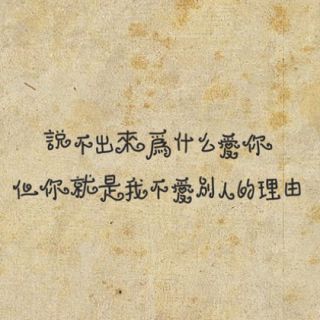 說不出來爲什么愛你
但你就是我不愛別人的理由